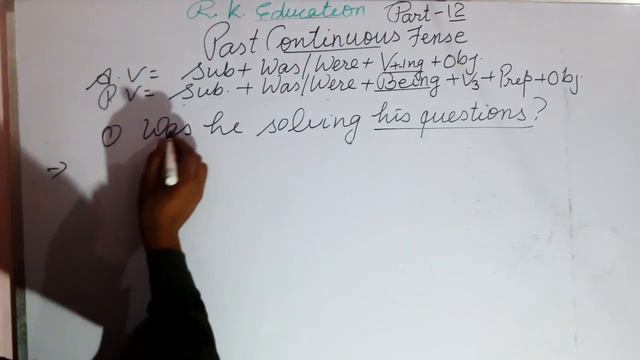 R. K. Education Part-12
Past Continuous Tense
A.V = Sub + Was/Were + V+ing + Obj.
P.V = Sub. + Was/Were + Being + V3 + Prep + Obj.
① Was he solving his questions?
⇒